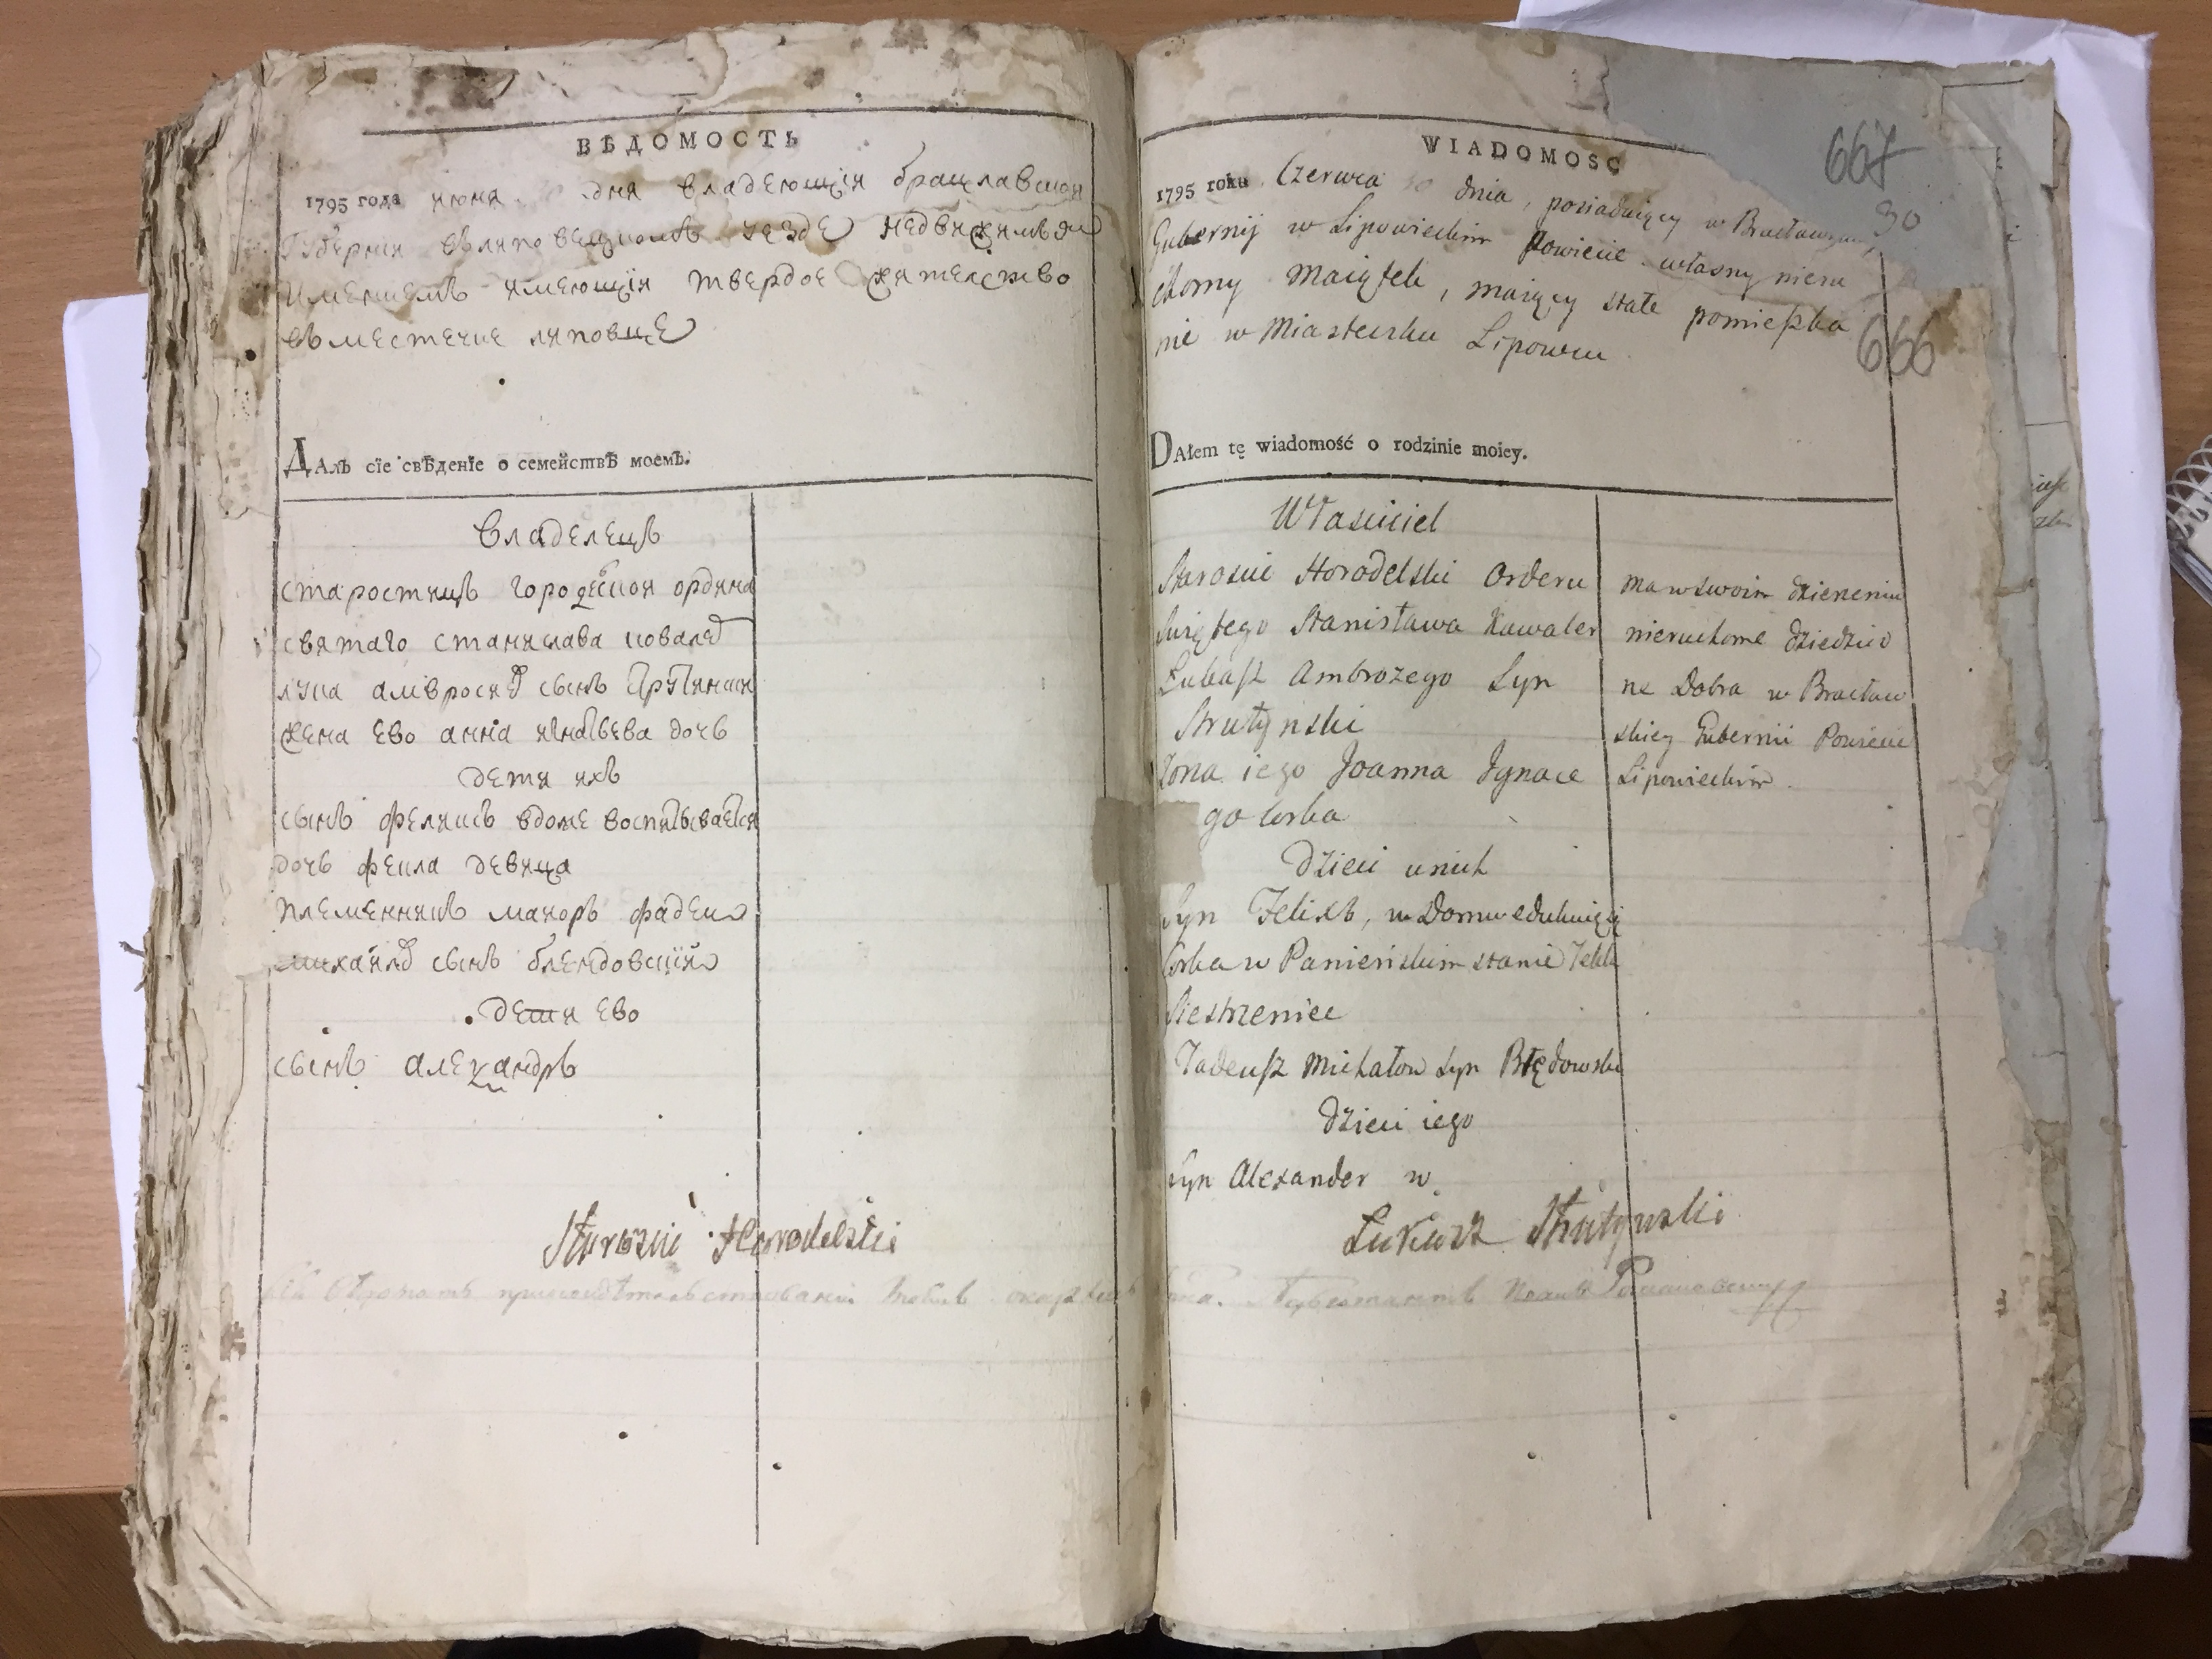 ВѢДОМОСТЬ
1795 года июня дня владеющїи брацлавской
Губернии въ липовецкомъ уезде недвижимымъ
имениемъ имеющїи твердое жителство
въ местечке липовце
ДАлъ сїе свѣденїе о семействѣ моемъ.
владелецъ
старостицъ городелской ордина
святаго станислава ковалер
лука амвросиев сынъ струтински
жена ево анна игнатьева дочь
дети ихъ
сынъ феликсъ вдоме воспитывается
дочь фекла девица
племенникъ маиоръ фадеи
михаилов сынъ блендовскїи
дети ево
сынъ александръ
Starościc Horodelski
WIADOMOSC
667
1795 roku Czerwca 30 dnia, posiadaiący w Bracławskiey
30
Gubernij w Lipowieckim Powiecie własny nieru
chomy Maiątek, maiący stałe pomieszka
nie w Miasteczku Lipowcu
666
DAłem tę wiadomość o rodzinie moiey.
Właściciel
Starościc Horodelski Orderu
Swiętego Stanisława Kawaler
Łukasz Ambrożego Syn
Strutyński
Zona iego Joanna Jgnace
go Corka
Dzieci unich
Syn Felixs, w Domu edukuiący
Corka w Panieńskim stanie Tekla
Siestrzeniec
Tadeusz Michałow Syn Błędowski
Dzieci iego
Syn Alexander
ma w swoim dzierzeniu
nieruchome dziedzicz
ne Dobra w Bracław
skiey Gubernii Powiecie
Lipowieckim.
Łukasz Strutynski